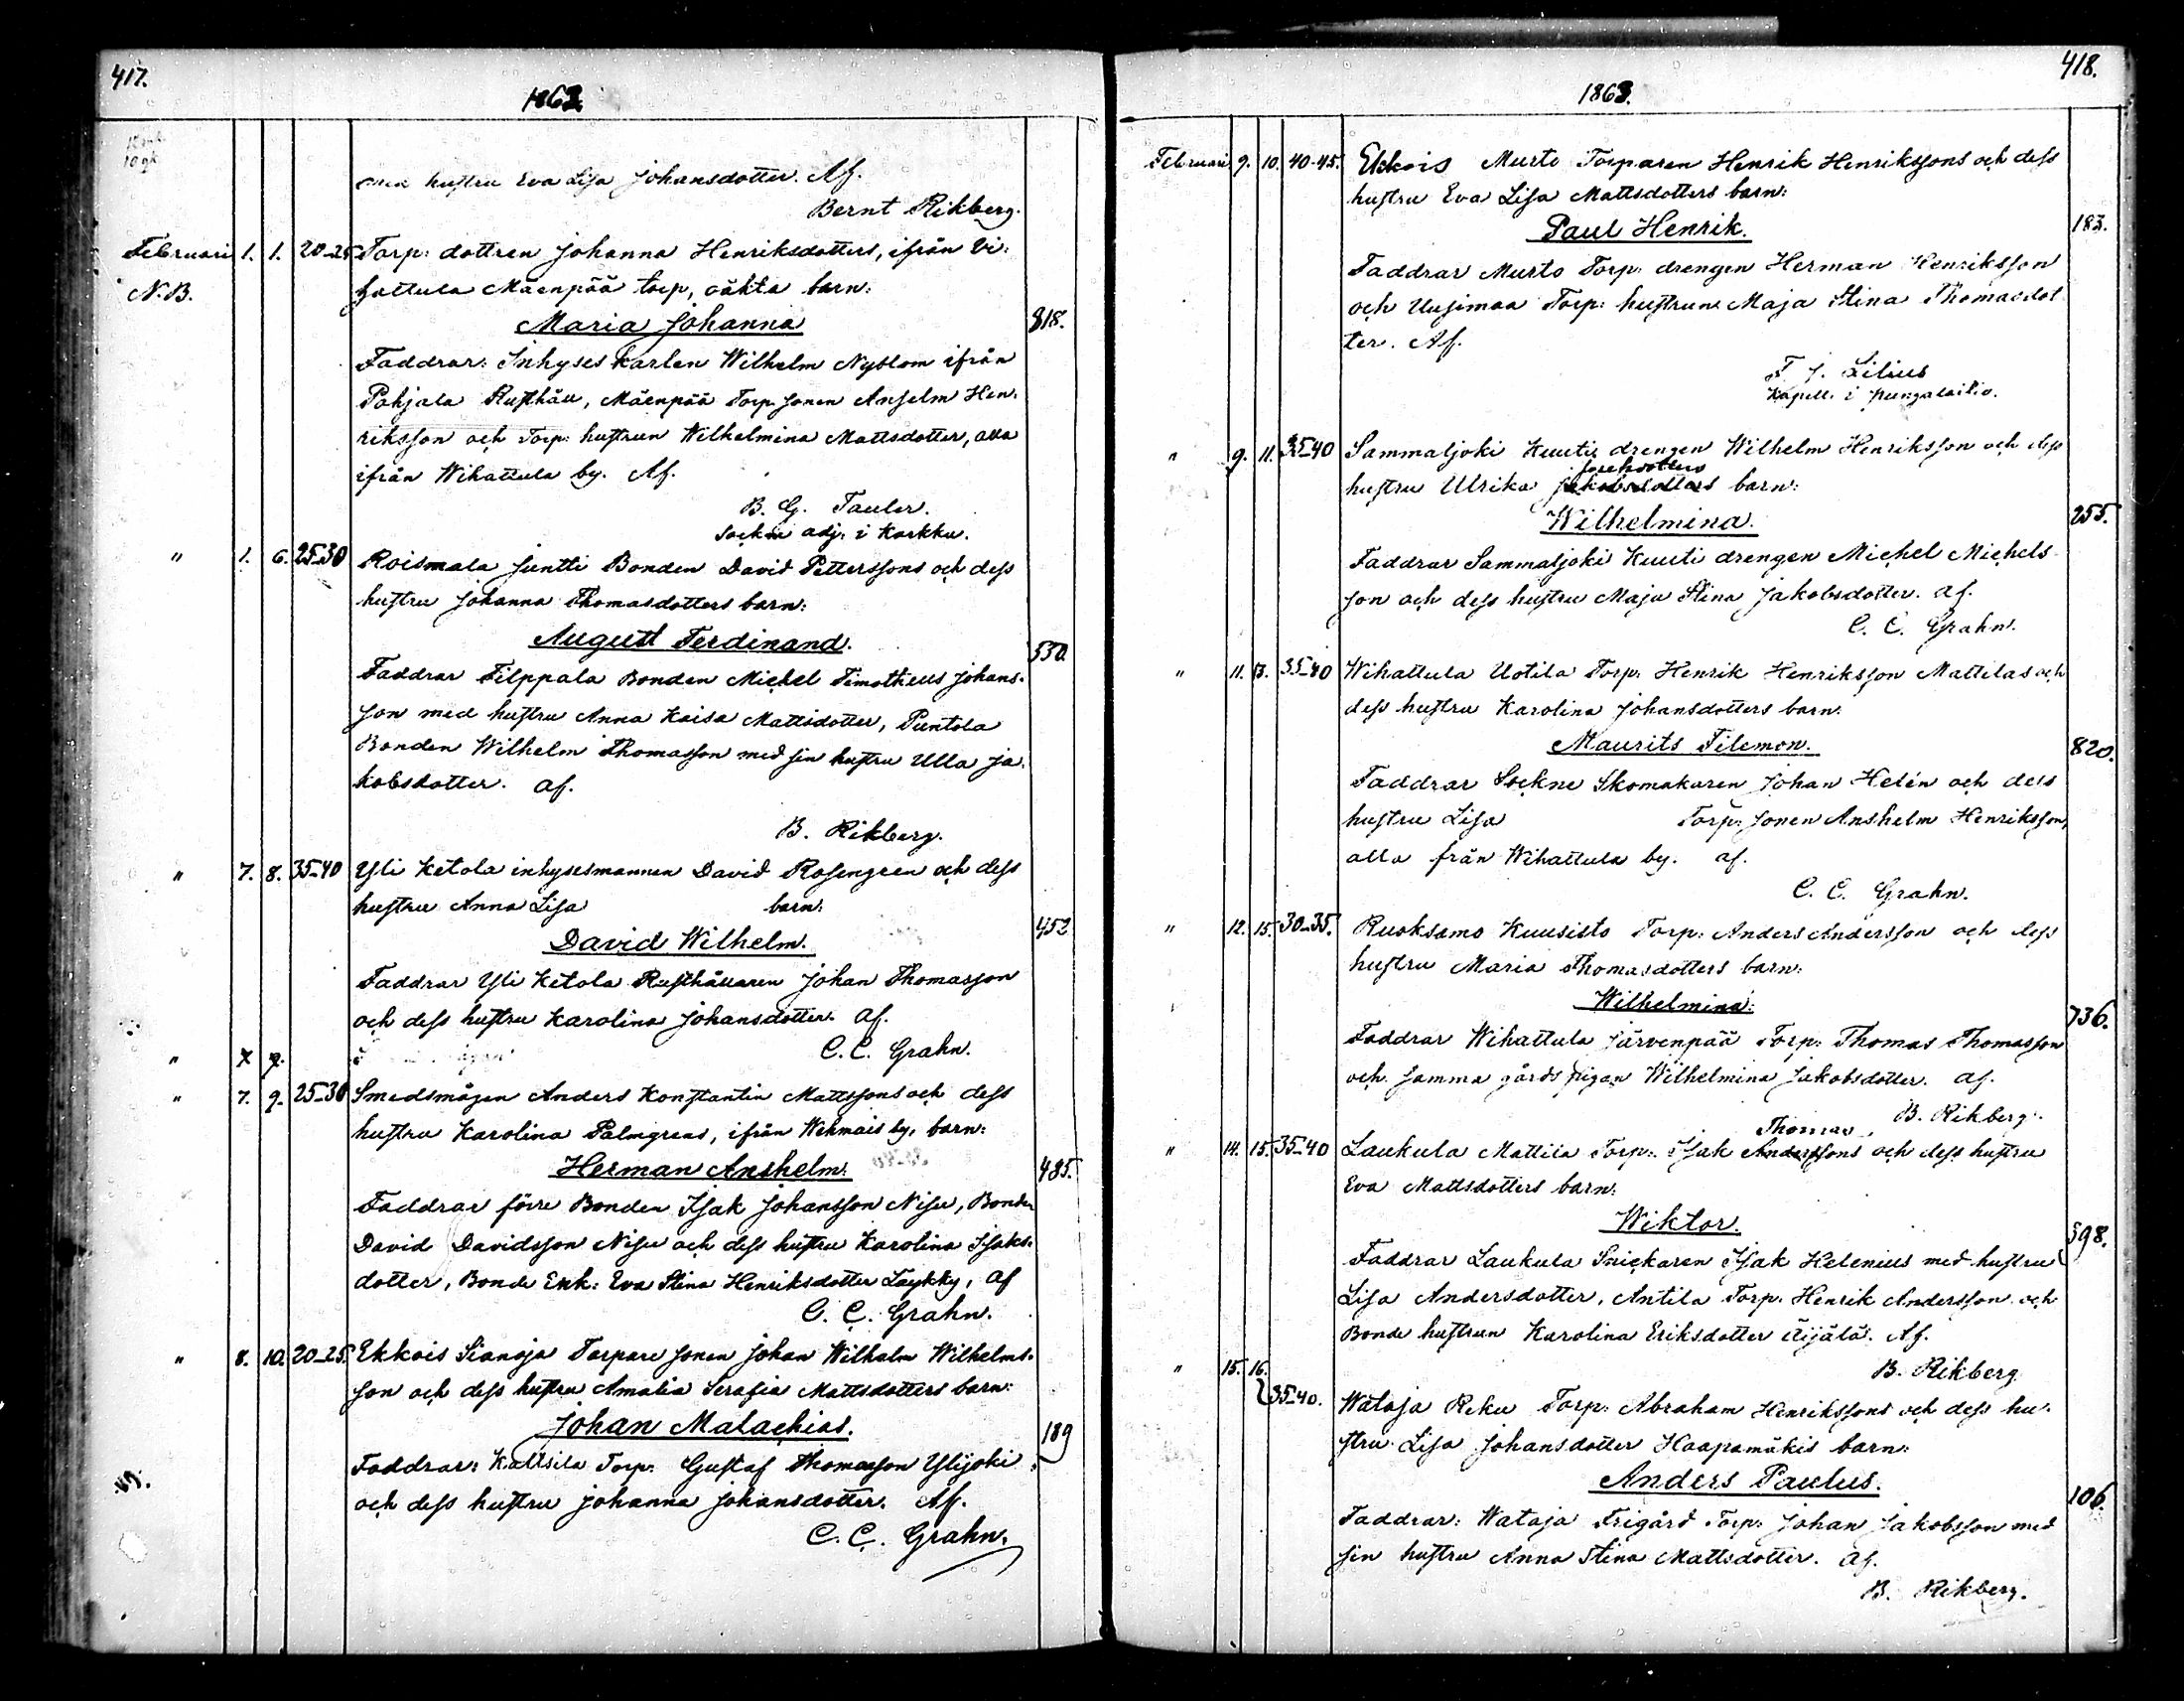 417.
1863.
10 gk
med hustru Eva Lisa Johansdotter. Af.
Bernt Rikberg.
Februari 1. 1. 20-25 Torp: dottren Johanna Henriksdotters, ifrån Vi-
N.B. hattula Mäenpää torp, oäkta barn:
Maria Johanna 818.
Faddrar: Inhyses karlen Wilhelm Nyblom ifrån
Pohjala Rusthåll, Mäenpää Torp. sonen Anselm Hen-
riksson och Torp: hustrun Wilhelmina Mattsdotter, alla
ifrån Wihattula by. Af.
B. G. Tauler.
Socken adj. i Karkku.
" 1. 6. 25-30 Roismala Juntti Bonden David Petterssons och dess
hustru Johanna Thomasdotters barn:
August Ferdinand. 530.
Faddrar Filppala Bonden Michel Timotheus Johans-
son med hustru Anna Kaisa Mattsdotter, Puntola
Bonden Wilhelm Thomasson med sin hustru Ulla Ja-
kobsdotter. af.
B. Rikberg.
" 7. 8. 35-40 Yli Ketola inhysesmannen David Rosengren och dess
hustru Anna Lisa barn:
David Wilhelm. 452
Faddrar Yli Ketola Rusthållaren Johan Thomasson
och dess hustru Karolina Johansdotter. af.
C. C. Grahn.
" 7 9.
" 7. 9. 25-30 Smedsmågen Anders Konstantin Mattssons och dess
hustru Karolina Palmgrens, ifrån Wehmais by, barn:
Herman Anshelm. 485.
Faddrar förre Bonden Isak Johansson Nisu, Bonden
David Davidsson Nisu och dess hustru Karolina Isaks-
dotter, Bonde Enk: Eva Stina Henriksdotter Laykky, af
C. C. Grahn.
" 8. 10. 20-25. Ekkois Sianoja Torpare sonen Johan Wilhelm Wilhelms-
son och dess hustru Amalia Serafia Mattsdotters barn:
Johan Malachias. 189
Faddrar: Kaltsila Torp: Gustaf Thomasson Ylijoki
och dess hustru Johanna Johansdotter. Af.
C. C. Grahn.
418.
1863.
Februari 9. 10. 40-45. Ekkois Murto Torparen Henrik Henrikssons och dess
hustru Eva Lisa Mattsdotters barn:
Paul Henrik. 183.
Faddrar Murto Torp: drengen Herman Henriksson
och Uusimaa Torp: hustrun Maja Stina Thomasdot-
ter. Af.
F. J. Lilius
Kapell. i Pungalaitio.
" 9. 11. 35-40 Sammaljoki Kuuti drengen Wilhelm Henriksson och dess
hustru Ulrika Jakobsdotters barn:
Wilhelmina. 255.
Faddrar Sammaljoki Kuuti drengen Michel Michels-
son och dess hustru Maja Stina Jakobsdotter. af.
C. C. Grahn.
" 11. 13. 35-40 Wihattula Uotila Torp: Henrik Henriksson Mattilas och
dess hustru Karolina Johansdotters barn:
Maurits Filemon. 820.
Faddrar Sockne Skomakaren Johan Helén och dess
hustru Lisa Torp: sonen Anshelm Henriksson,
alla från Wihattula by. af.
C. C. Grahn.
" 12. 15. 30-35. Ruoksamo Kuusisto Torp: Anders Andersson och dess
hustru Maria Thomasdotters barn:
Wilhelmina: 736.
Faddrar Wihattula Järvenpää Torp: Thomas Thomasson
och samma gårds pigan Wilhelmina Jakobsdotter. af.
B. Rikberg.
Thomas
" 14. 15. 35-40 Laukula Mattila Torp: Isak Anderssons och dess hustru
Eva Mattsdotters barn:
Wiktor. 598.
Faddrar Laukula Snickaren Isak Helenius med hustru
Lisa Andersdotter, Antila Torp: Henrik Andersson och
Bonde hustrun Karolina Eriksdotter Äijälä. Af.
B. Rikberg
" 15. 16. 35-40. Wataja Reku Torp: Abraham Henrikssons och dess hu-
stru Lisa Johansdotter Haapamäkis barn:
Anders Paulus. 106.
Faddrar: Wataja Frigård Torp: Johan Jakobsson med
sin hustru Anna Stina Mattsdotter. af.
B. Rikberg.